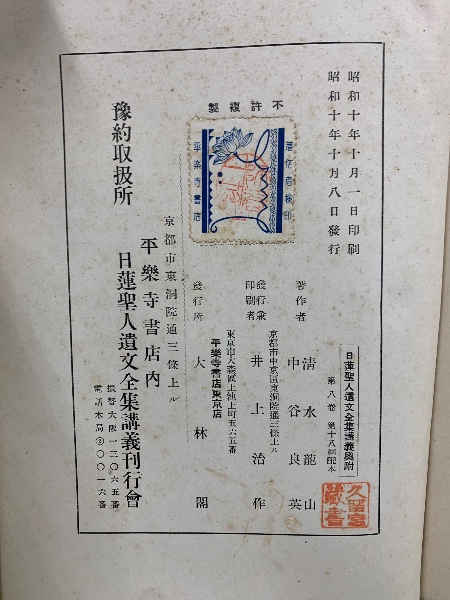 昭和十年十月一日印刷
昭和十年十月八日發行
日蓮聖人遺文全集講義奧附
第八卷 第十八回配本
久留宮藏書
著作者
清水龍山
中谷良英
京都市中京區東洞院通三條上ル
發行兼印刷者
井上治作
東京市大森區上池上町五六五番
平樂寺書店東京店
發行所
大林閣
不許複製
著作者檢印
平樂寺書店
京都市東洞院通三條上ル
平樂寺書店內
豫約取扱所
日蓮聖人遺文全集講義刊行會
振替大阪一三〇六五番
電話本局②〇〇一六番